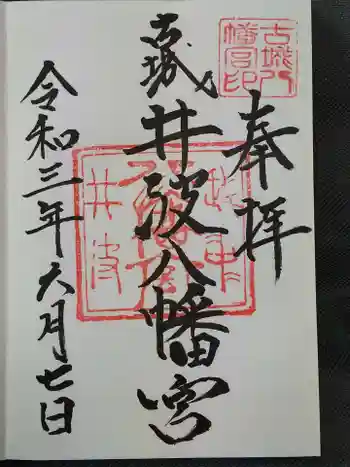 古城八
幡宮印
奉拝
古城 井波八幡宮
井波
令和三年六月七日